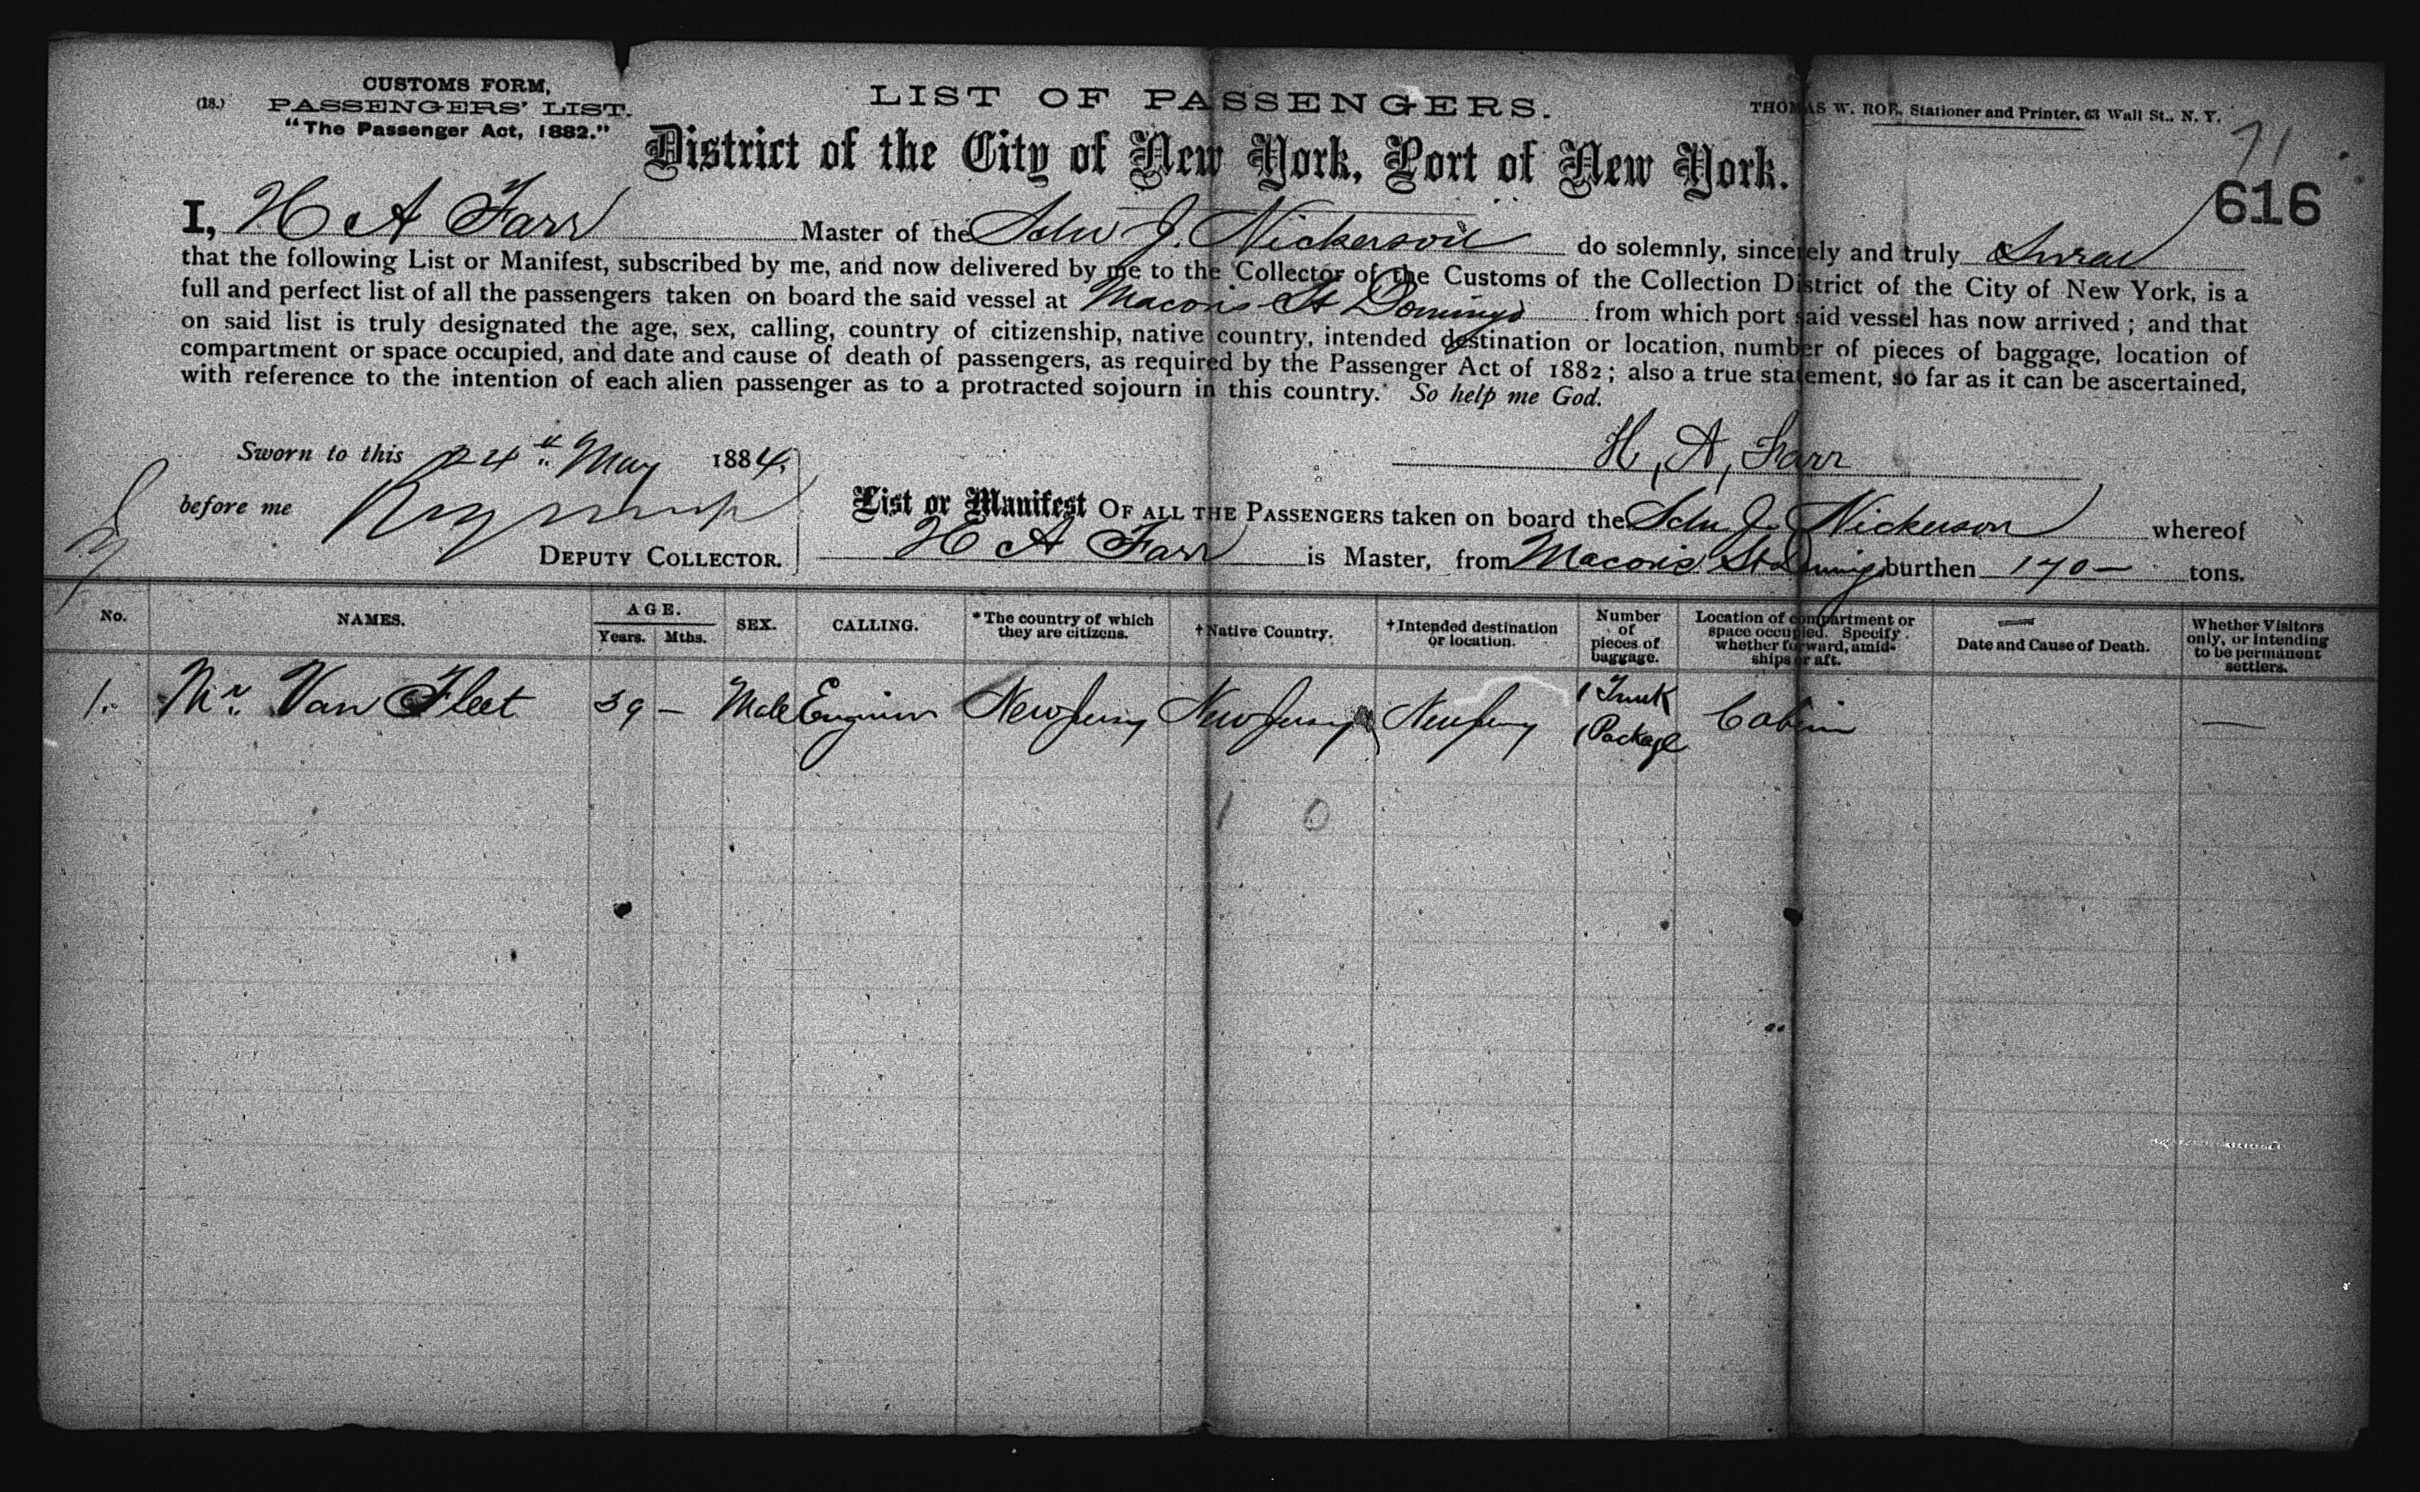 CUSTOMS FORM,
(18.) PASSENGERS' LIST.
"The Passenger Act, 1882."
LIST OF PASSENGERS.
THOMAS W. ROE, Stationer and Printer, 63 Wall St., N. Y.
71
616
District of the City of New York, Port of New York.
I, H A Farr Master of the Schr J. Nickerson do solemnly, sincerely and truly Swear
that the following List or Manifest, subscribed by me, and now delivered by me to the Collector of the Customs of the Collection District of the City of New York, is a
full and perfect list of all the passengers taken on board the said vessel at Macoris St Domingo from which port said vessel has now arrived; and that
on said list is truly designated the age, sex, calling, country of citizenship, native country, intended destination or location, number of pieces of baggage, location of
compartment or space occupied, and date and cause of death of passengers, as required by the Passenger Act of 1882; also a true statement, so far as it can be ascertained,
with reference to the intention of each alien passenger as to a protracted sojourn in this country. So help me God.
Sworn to this 24th May 1884.
H, A, Farr
before me
DEPUTY COLLECTOR.
List or Manifest OF ALL THE PASSENGERS taken on board the Schr J. Nickerson whereof
H A Farr is Master, from Macoris St Domingo burthen 170- tons.
No. NAMES. AGE. Years. Mths. SEX. CALLING. *The country of which they are citizens. †Native Country. †Intended destination or location. Number of pieces of baggage. Location of compartment or space occupied. Specify whether forward, amidships or aft. Date and Cause of Death. Whether Visitors only, or intending to be permanent settlers.
1. Mr. Van Fleet 39 — Male Engineer New Jersey New Jersey New Jersey 1 Trunk 1 Package Cabin —
1 0